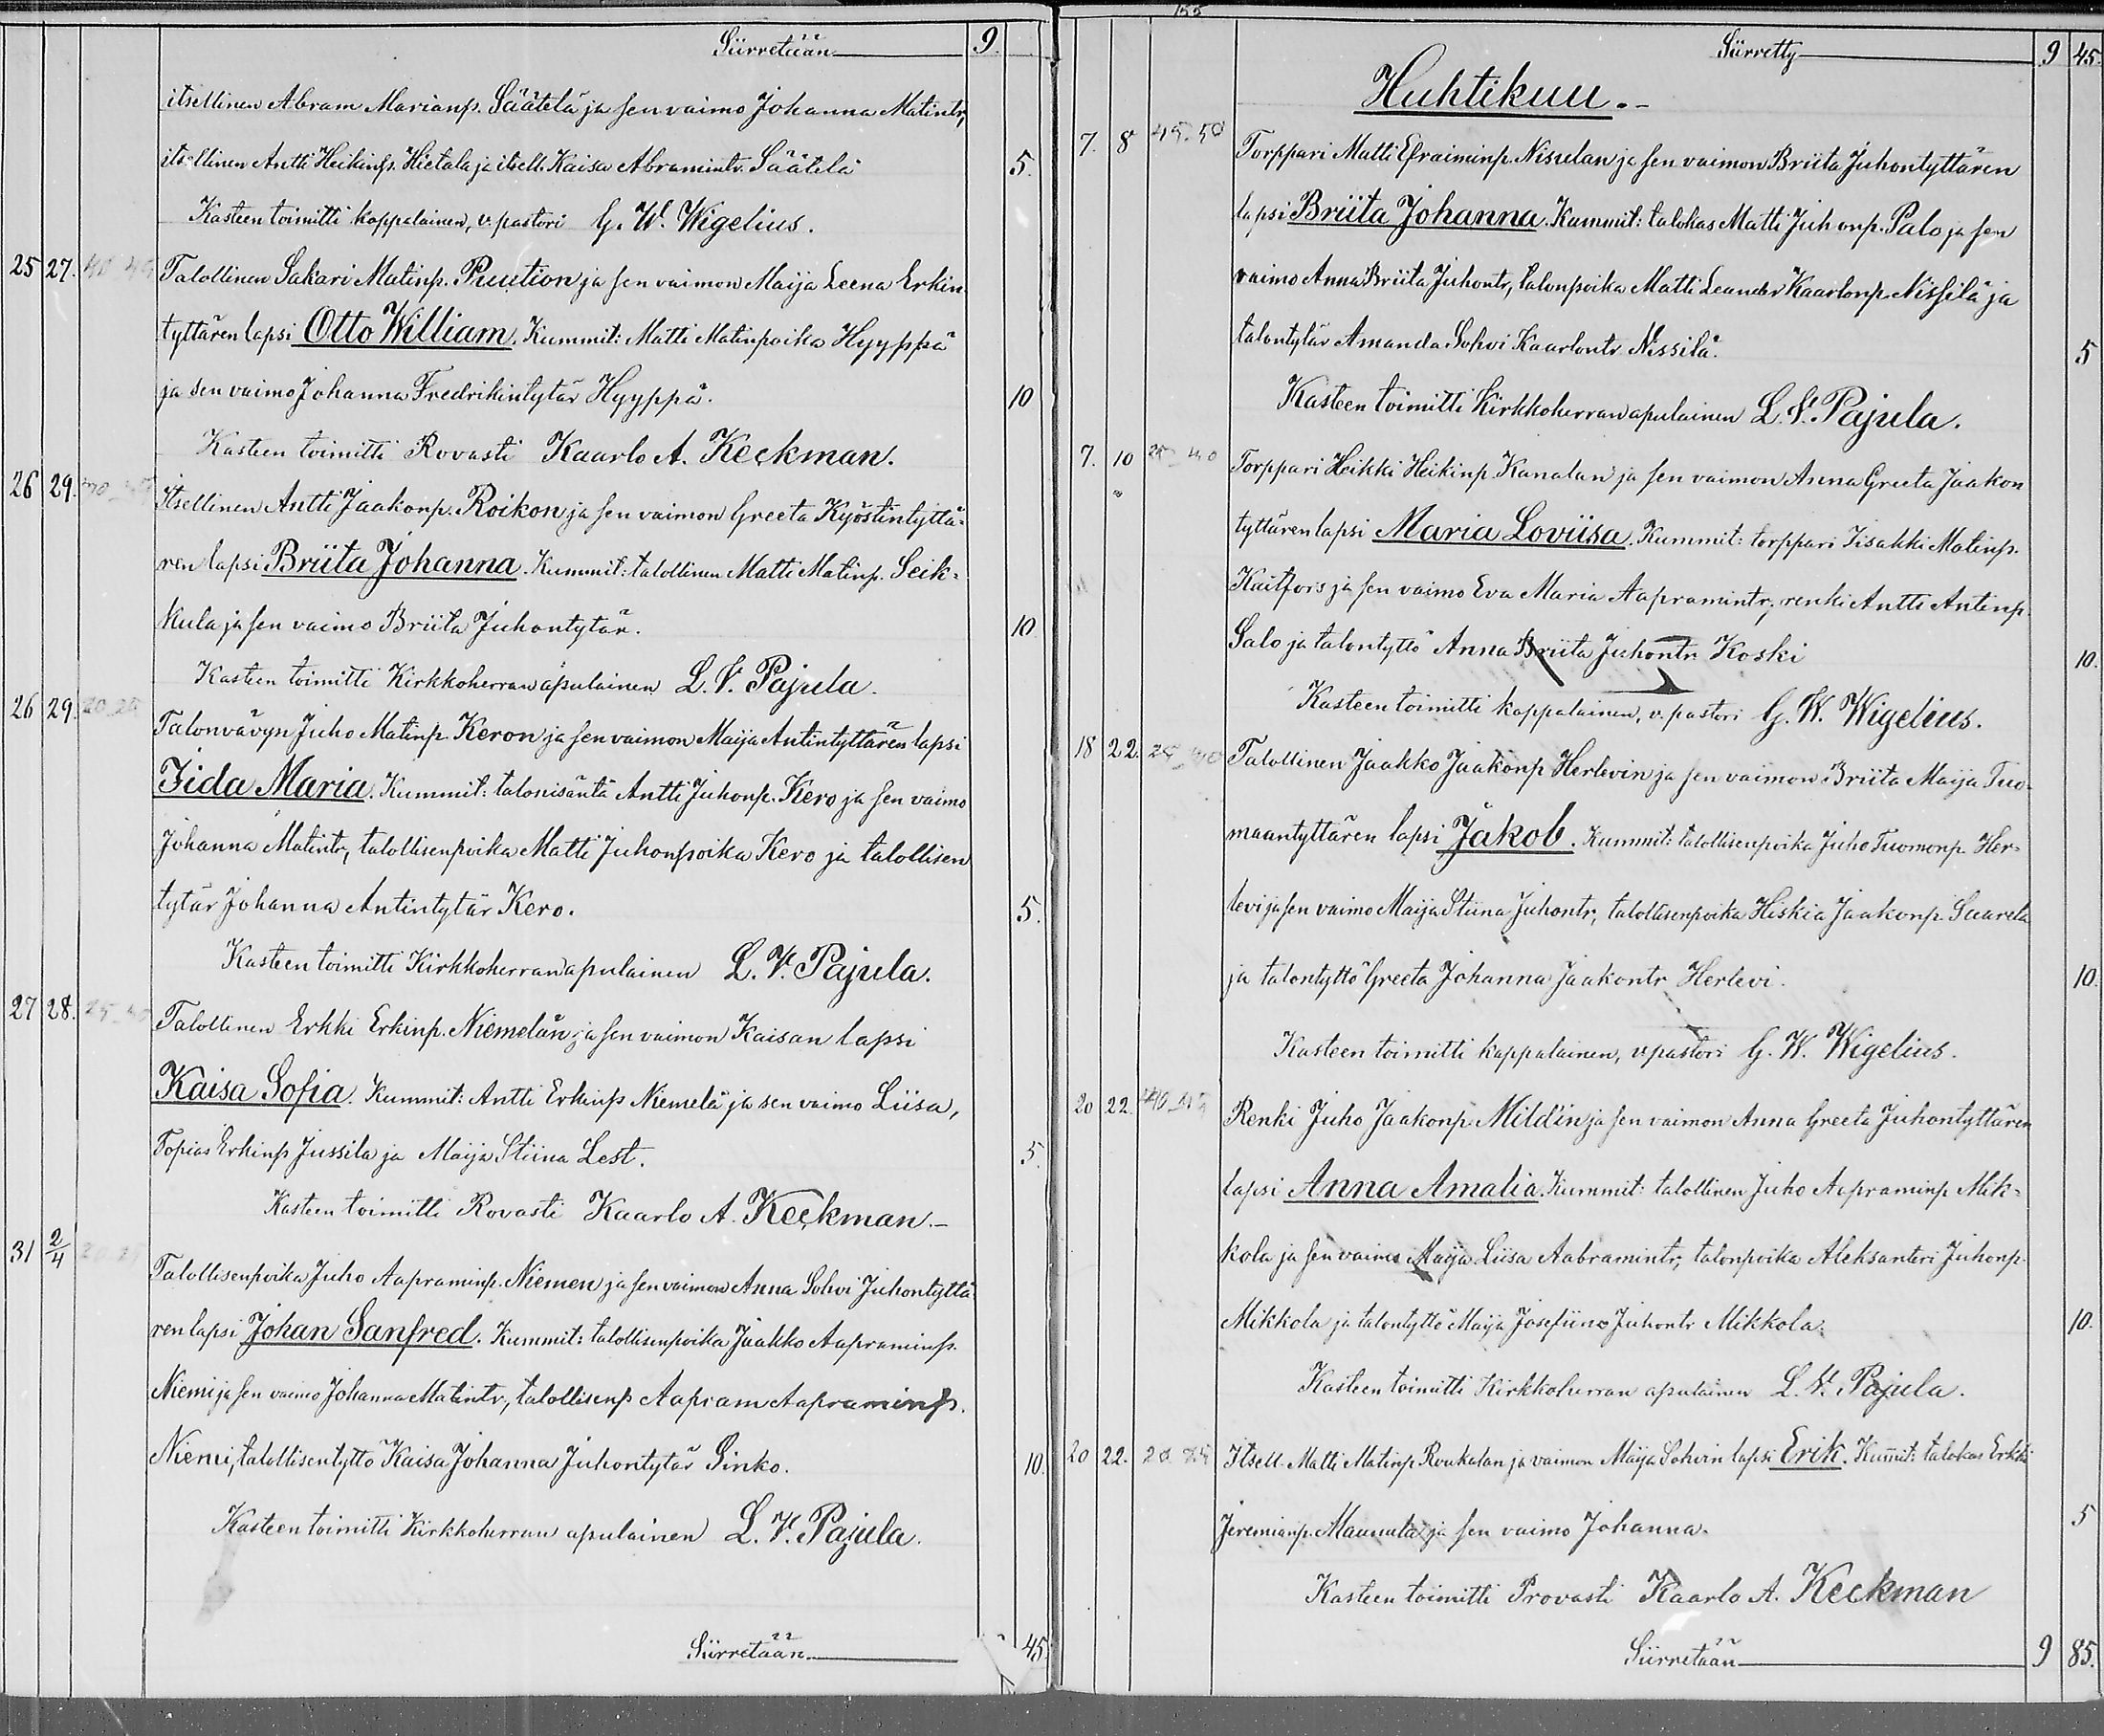 Siirretään 9.
itsellinen Abram Marianp. Säätelä ja sen vaimo Johanna Matintr,
itsellinen Antti Heikinp. Hietala ja itsell. Kaisa Abramintr. Säätelä 5.
Kasteen toimitti kappalainen, v. pastori G. W. Wigelius.
25 27. 40 45 Talollinen Sakari Matinp. Puution ja sen vaimon Maija Leena Erkin
tyttären lapsi Otto William. Kummit: Matti Matinpoika Hyyppä
ja sen vaimo Johanna Fredrikintytär Hyyppä. 10
Kasteen toimitti Rovasti Kaarlo A. Keckman.
26 29. Itsellinen Antti Jaakonp. Roikon ja sen vaimon Greeta Kyöstintyttä-
ren lapsi Briita Johanna. Kummit: talollinen Matti Matinp. Seik-
kula ja sen vaimo Briita Juhontytär. 10
Kasteen toimitti Kirkkoherran apulainen L. V. Pajula.
26 29. 20 25 Talonvävyn Juho Matinp. Keron ja sen vaimon Maija Antintyttären lapsi
Iida Maria. Kummit: talonisäntä Antti Juhonp. Kero ja sen vaimo
Johanna Matintr, talollisenpoika Matti Juhonpoika Kero ja talollisen
tytär Johanna Antintytär Kero. 5.
Kasteen toimitti Kirkkoherran apulainen L. V. Pajula.
27 28. Talollinen Erkki Erkinp. Niemelän ja sen vaimon Kaisan lapsi
Kaisa Sofia. Kummit: Antti Erkinp Niemelä ja sen vaimo Liisa,
Topias Erkinp Jussila ja Maija Stiina Lest. 5.
Kasteen toimitti Rovasti Kaarlo A. Keckman.-
31 2/4 Talollisenpoika Juho Aapraminp. Niemen ja sen vaimon Anna Sohvi Juhontyttä-
ren lapsi Johan Sanfred. Kummit: talollisenpoika Jaakko Aapraminp.
Niemi ja sen vaimo Johanna Matintr., talollisenp Aapram Aapraminp.
Niemi, talollisentyttö Kaisa Johanna Juhontytär Sinko. 10.
Kasteen toimitti Kirkkoherran apulainen L. V. Pajula.
Siirretään 45.
155
Siirretty 9 45.
Huhtikuu.-
7. 8 45-50 Torppari Matti Efraiminp. Nisulan ja sen vaimon Briita Juhontyttären
lapsi Briita Johanna. Kummit: talokas Matti Juhonp. Palo ja sen
vaimo Anna Briita Juhontr, talonpoika Matti Leander Kaarlonp. Nissilä ja
talontytär Amanda Sohvi Kaarlontr. Nissilä. 5
Kasteen toimitti Kirkkoherran apulainen L. V. Pajula.
7. 10 Torppari Heikki Heikinp. Kanalan ja sen vaimon Anna Greeta Jaakon
tyttären lapsi Maria Loviisa. Kummit: torppari Iisakki Matinp.
Kaitfors ja sen vaimo Eva Maria Aapramintr, renki Antti Antinp.
Salo ja talontyttö Anna Briita Juhontr Koski 10.
Kasteen toimitti kappalainen, v. pastori G. W. Wigelius.
18 22. Talollinen Jaakko Jaakonp Herlevin ja sen vaimon Briita Maija Tuo-
maantyttären lapsi Jakob. Kummit: talollisenpoika Juho Tuomonp. Her-
levi ja sen vaimo Maija Stiina Juhontr, talollisenpoika Hiskia Jaakonp. Saarela
ja talontyttö Greeta Johanna Jaakontr Herlevi. 10.
Kasteen toimitti kappalainen, v. pastori G. W. Wigelius.
20 22. 40-45 Renki Juho Jaakonp. Mildin ja sen vaimon Anna Greeta Juhontyttären
lapsi Anna Amalia. Kummit: talollinen Juho Aapraminp Mik-
kola ja sen vaimo Maija Liisa Aabramintr, talonpoika Aleksanteri Juhonp.
Mikkola ja talontyttö Maija Josefiina Juhontr Mikkola. 10.
Kasteen toimitti Kirkkoherran apulainen L. V. Pajula.
20 22. 20 25 Itsell. Matti Matinp Roukalan ja vaimon Maija Sohvin lapsi Erik. Kummit: talokas Erkki
Jeremianp. Maunula ja sen vaimo Johanna. 5
Kasteen toimitti Provasti Kaarlo A. Keckman
Siirretään 9 85.